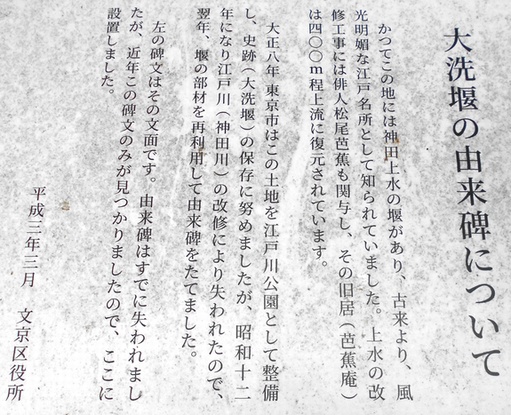 大洗堰の由来碑について
かつてこの地には神田上水の堰があり、古来より、風
光明媚な江戸名所として知られていました。上水の改
修工事には俳人松尾芭蕉も関与し、その旧居(芭蕉庵)
は四〇〇m程上流に復元されています。
大正八年 東京市はこの土地を江戸川公園として整備
し、史跡(大洗堰)の保存に努めましたが、昭和十二
年になり江戸川(神田川)の改修により失われたので、
翌年、堰の部材を再利用して由来碑をたてました。
左の碑文はその文面です。由来碑はすでに失われまし
たが、近年この碑文のみが見つかりましたので、ここに
設置しました。
平成三年三月 文京区役所